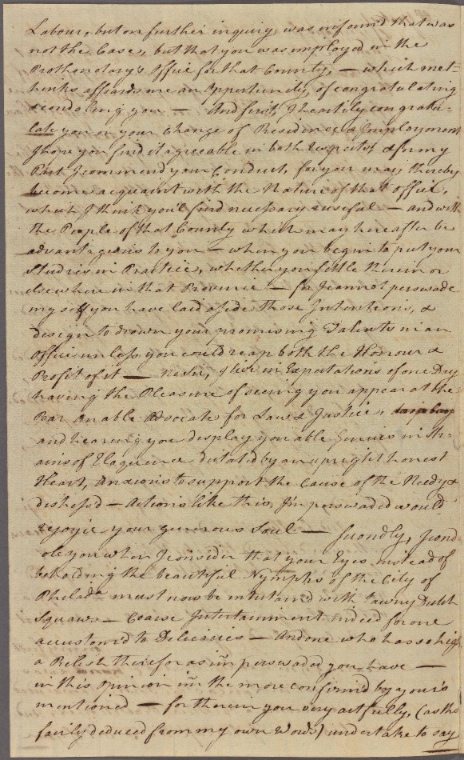 Labour, but on further inquiry was informd that was
not the Case, but that you was employed in the
Prothonotary's Office for that County, — which met-
hinks affords me an Opportunity, of congratulating
& condoling you — And first, I heartily congratu-
late you on your Change of Residence & Employment
I hope you find it agreeable in both respects & for my
Part I commend your Conduct, for you may thereby
become acquaint with the Nature of that Office,
which I think you'l find necessary & useful — and with
the People of that County which may hereafter be
advantagious to you — when you begin to put your
Studies in Practice, whether you settle therein or
elsewhere in that Province — for I cannot perswade
my self you have laid aside those Intentions, &
design to drown your promising Talents in an
Office unless you could reap both the Honour &
Profit of it — No Sir, I live in Expectations of one Day
having the Pleasure of seeing you appear at the
Bar an able Advocate for Law & Justice,
and hearing you display your able Genius in Str-
ains of Eloquence dictated by an upright honest
Heart, anxious to support the Cause of the Needy &
distress'd — Actions like this, I'm perswaded would
rejoyce your generous Soul — Secondly, I cond-
ole you when I consider that your Eyes instead of
beholding the beautiful Nymphs of the City of
Philada. must now be entertaind with tawny Dutch
Squaws — Coarse Entertainment indeed for one
accustomed to Delicacies — And one who has so high
a Relish therefor as i'm perswaded you have —
in this Opinion i'm the more confirmd by your's
mentioned — for therein you very artfully, (as tho
fairly deduced from my own Words) undertake to say